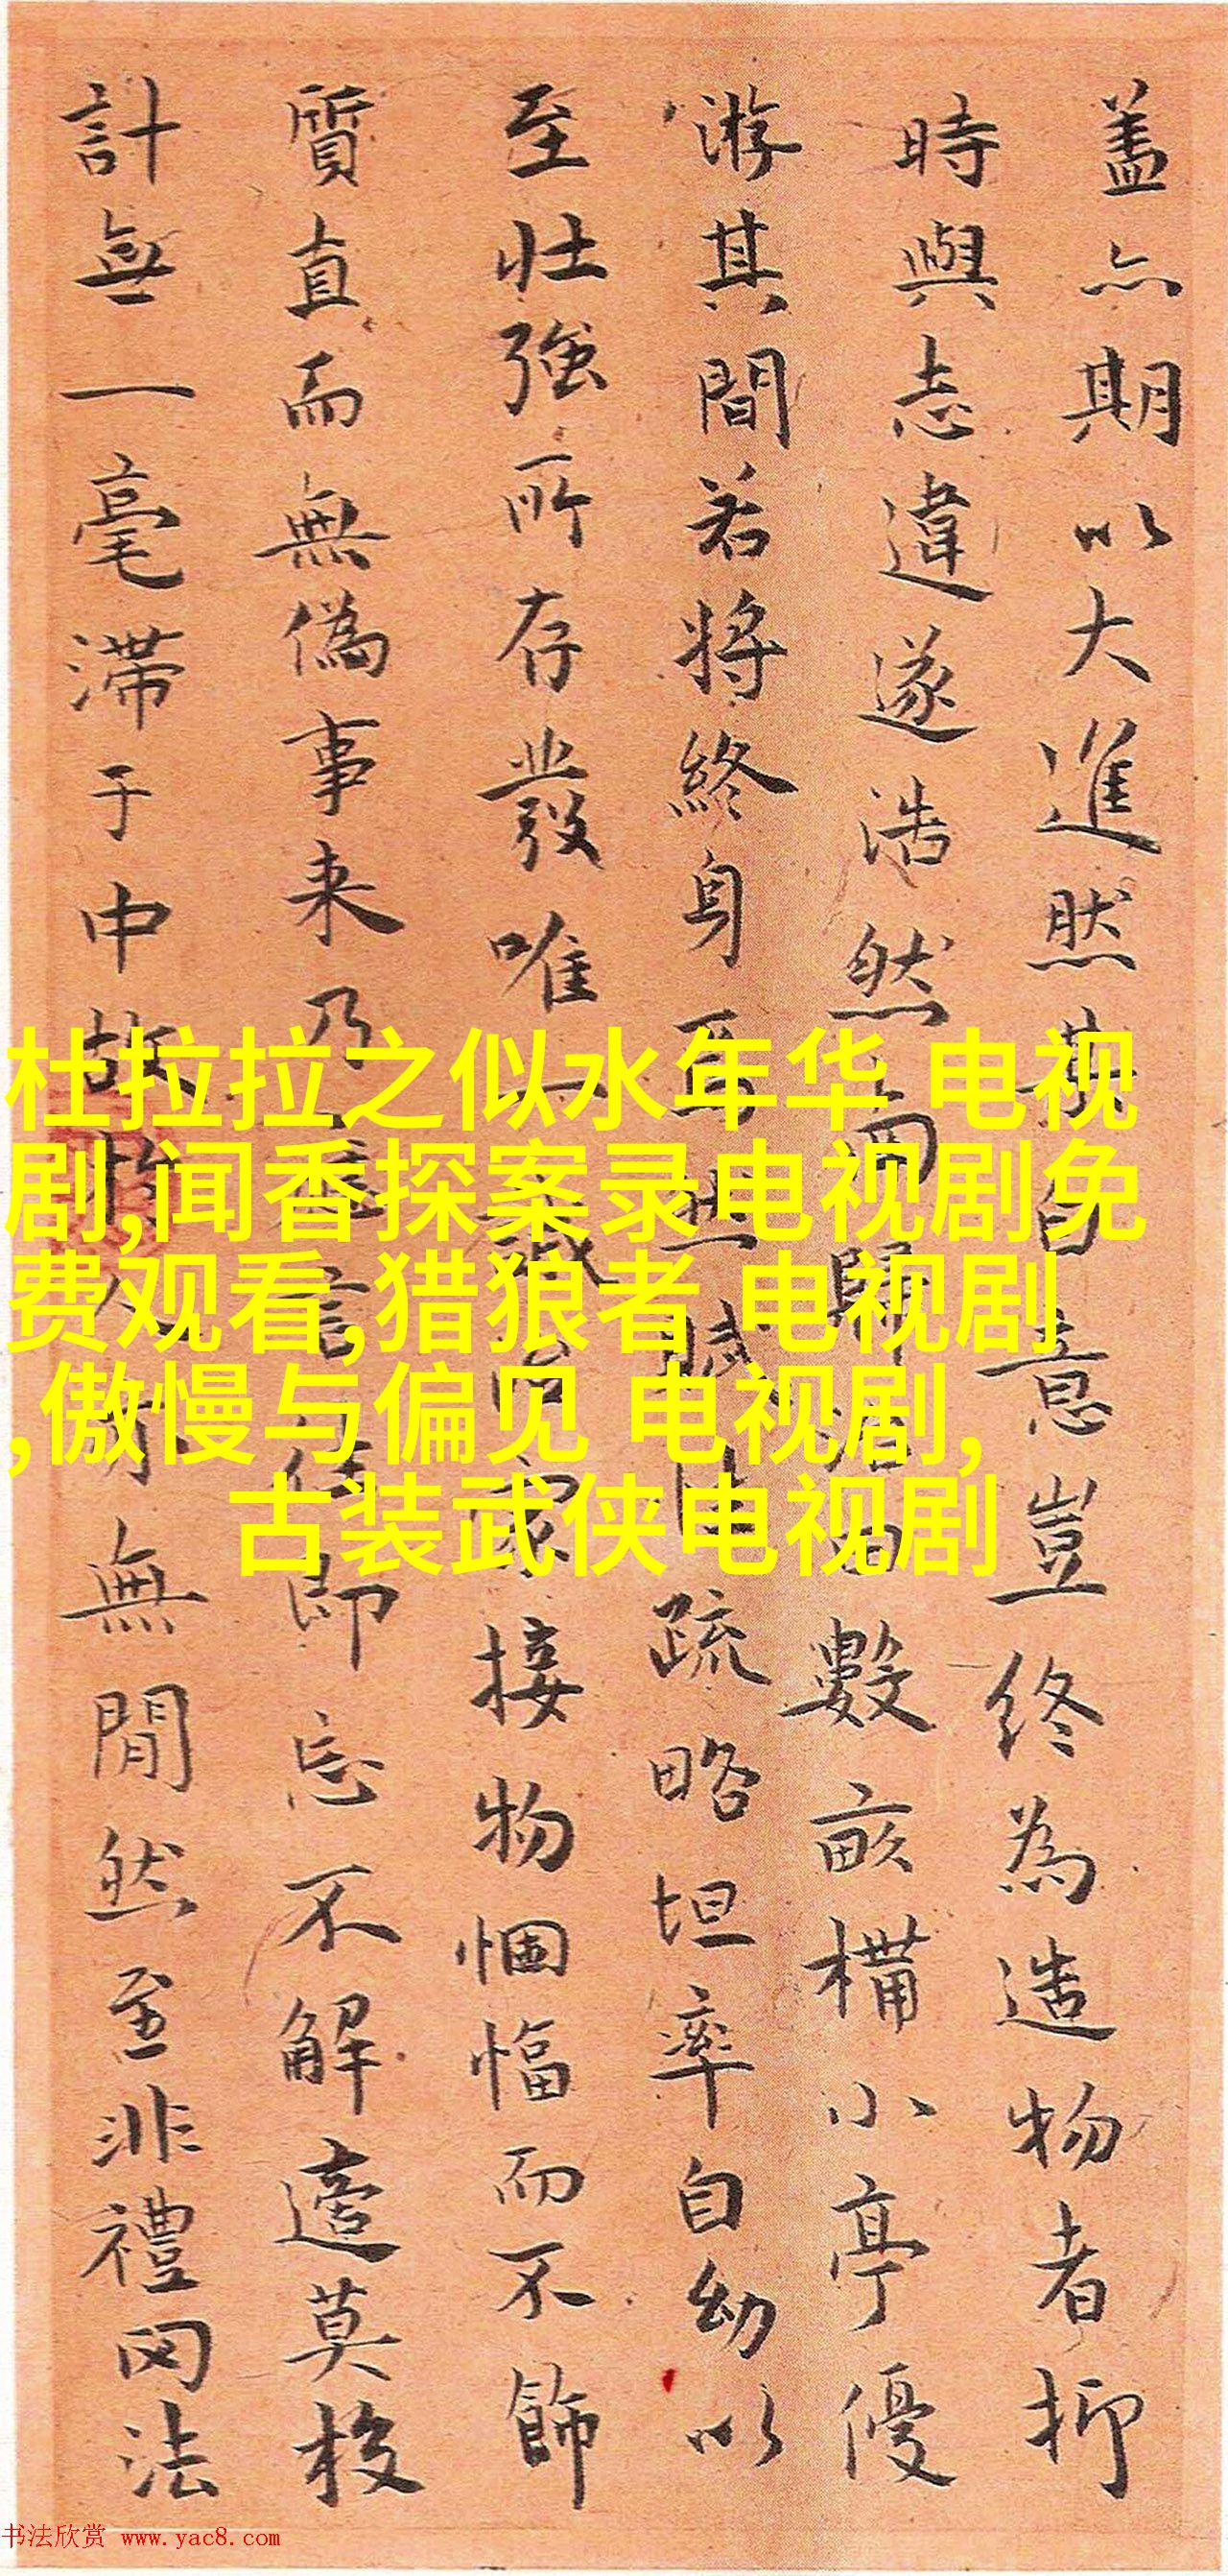 盖亦期以大進然其自意豈終為造物者抑
時與志違遂浩然而歸治田數畝構小亭優
游其間若将終身耳然賦性疏略坦率自幼以
至壮強所存發唯一誠治家接物悃愊而不飾
質直而無偽事来乃應言往即忘不解適莫校
計無一毫滞于中故亦無閒然至非禮罔法
杜拉拉之似水年华 电视
剧,闻香探案录电视剧免
费观看,猎狼者 电视剧
,傲慢与偏见 电视剧,
古装武侠电视剧
书法欣赏 www.yac8.com